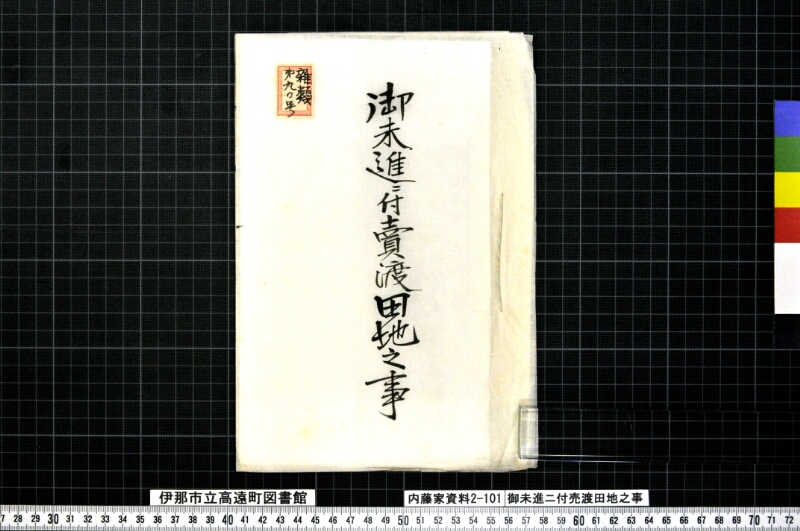 御未進ニ付賣渡田地之事
雜
伊那市立高遠町図書館
内藤家資料2-101
御未進ニ付売渡田地之事
27 28 29 30 31 32 33 34 35 36 37 38 39 40 41 42 43 44 45 46 47 48 49 50 51 52 53 54 55 56 57 58 59 60 61 62 63 64 65 66 67 68 69 70 71 72